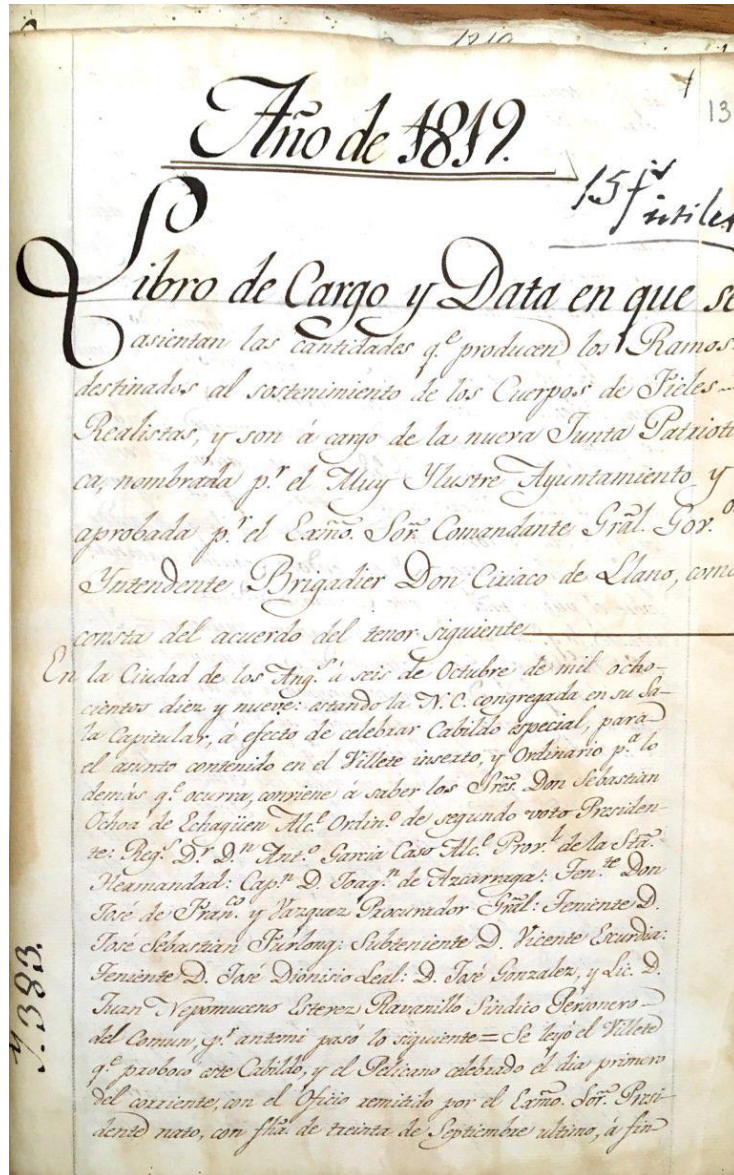 1819
1
13
Año de 1819.
15 f.s
utiles
Libro de Cargo y Data en que se
asientan las cantidades q.e producen los Ramos
destinados al sostenimiento de los Cuerpos de Fieles
Realistas, y son á cargo de la nueva Junta Patrioti
ca, nombrada p.r el Muy Ylustre Ayuntamiento y
aprobada p.r el Exmõ. Sor. Comandante Grãl. Gov.or
Yntendente Brigadier Don Ciriaco de Llano, como
consta del acuerdo del tenor siguiente
En la Ciudad de los Ang.s á seis de Octubre de mil ocho-
cientos diez y nueve: estando la N.C. congregada en su Sa-
la Capitular, á efecto de celebrar Cabildo especial, para
el asunto contenido en el Villete inserto, y Ordinario p.a lo
demás q.e ocurra, conviene á saber los Sres. Don Sebastian
Ochoa de Echagüen Alc.e Ordin.o de segundo voto Presiden-
te: Reg.s D.r D.n Ant.o Garcia Caso Alc.e Prov.l de la Sta.
Hermandad: Cap.n D. Joaq.n de Azcarraga: Ten.te Don
José de Fran.co y Vazquez Procurador Grãl: Teniente D.
José Sebastian Furlong: Subteniente D. Vicente Escurdia:
Teniente D. José Dionisio Leal: D. José Gonzalez, y Lic. D.
Juan Nepomuceno Estevez Ravanillo Sindico Personero
del Comun, p.r antemi pasó lo siguiente = Se leyó el Villete
q.e proboco este Cabildo, y el Pelicano celebrado el dia primero
del corriente, con el Oficio remitido por el Exmõ. Sor. Presi-
dente nato, con fhã. de treinta de Septiembre ultimo, á fin
383.